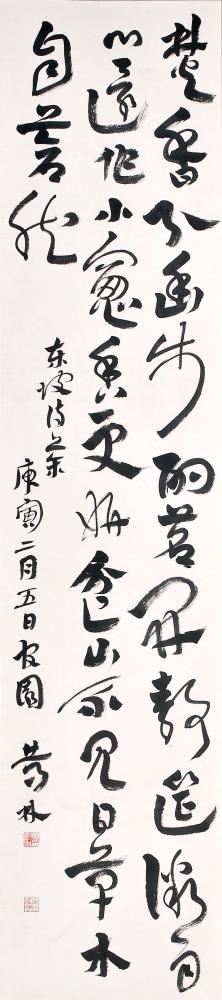 焚香引幽步酌茗開靜筵微雨
止還作小窗幽更妍盆山不見日草木
自蒼然
东坡诗
庚寅二月五日